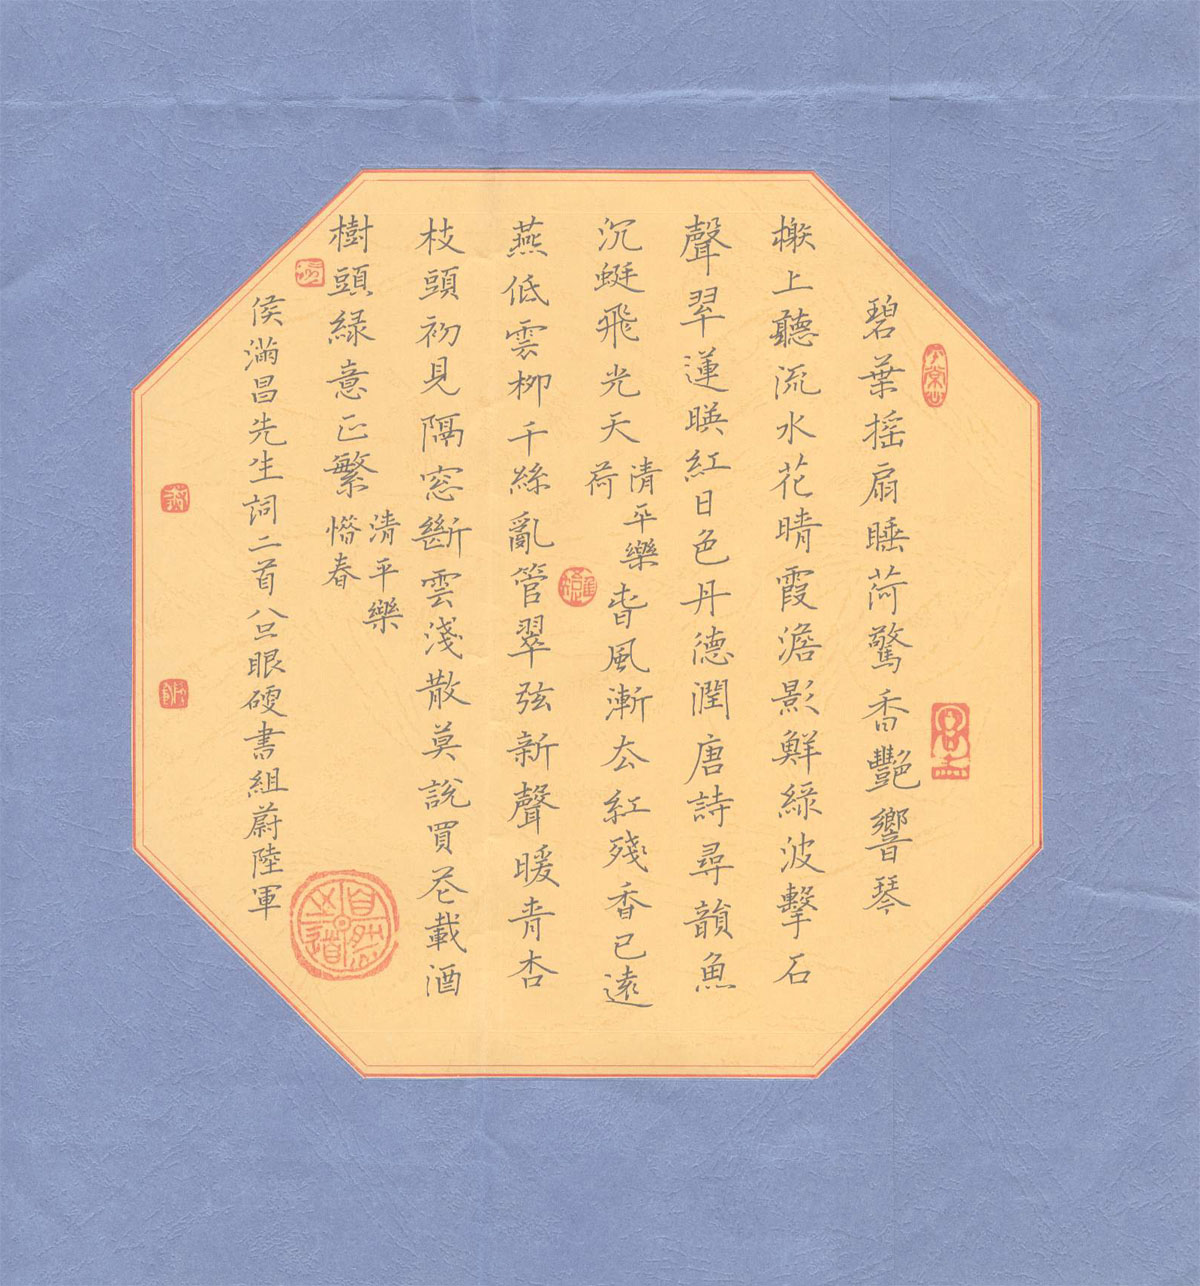 碧葉摇扇睡荷驚香艷響琴
榭上聽流水花晴霞澹影鮮綠波擊石
聲翠蓮暎紅日色丹德潤唐詩尋韻魚
沉蜓飛光天
清平樂
荷
春風漸去紅殘香已遠
燕低雲柳千絲亂管翠弦新聲暖青杏
枝頭初見隔窓斷雲淺散莫說買花載酒
樹頭綠意正繁
清平樂
惜春
侯滿昌先生詞二首 眼硬書組蔚陸軍